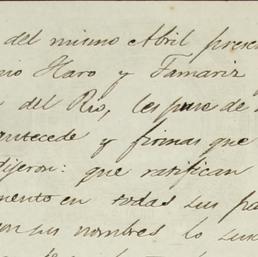 del mismo Abril prese
nio Haro y Tamariz
del Rio, les puse de
antecede y firmas que
dijeron: que ratifican
mento en todas sus pa
sus nombres lo sus